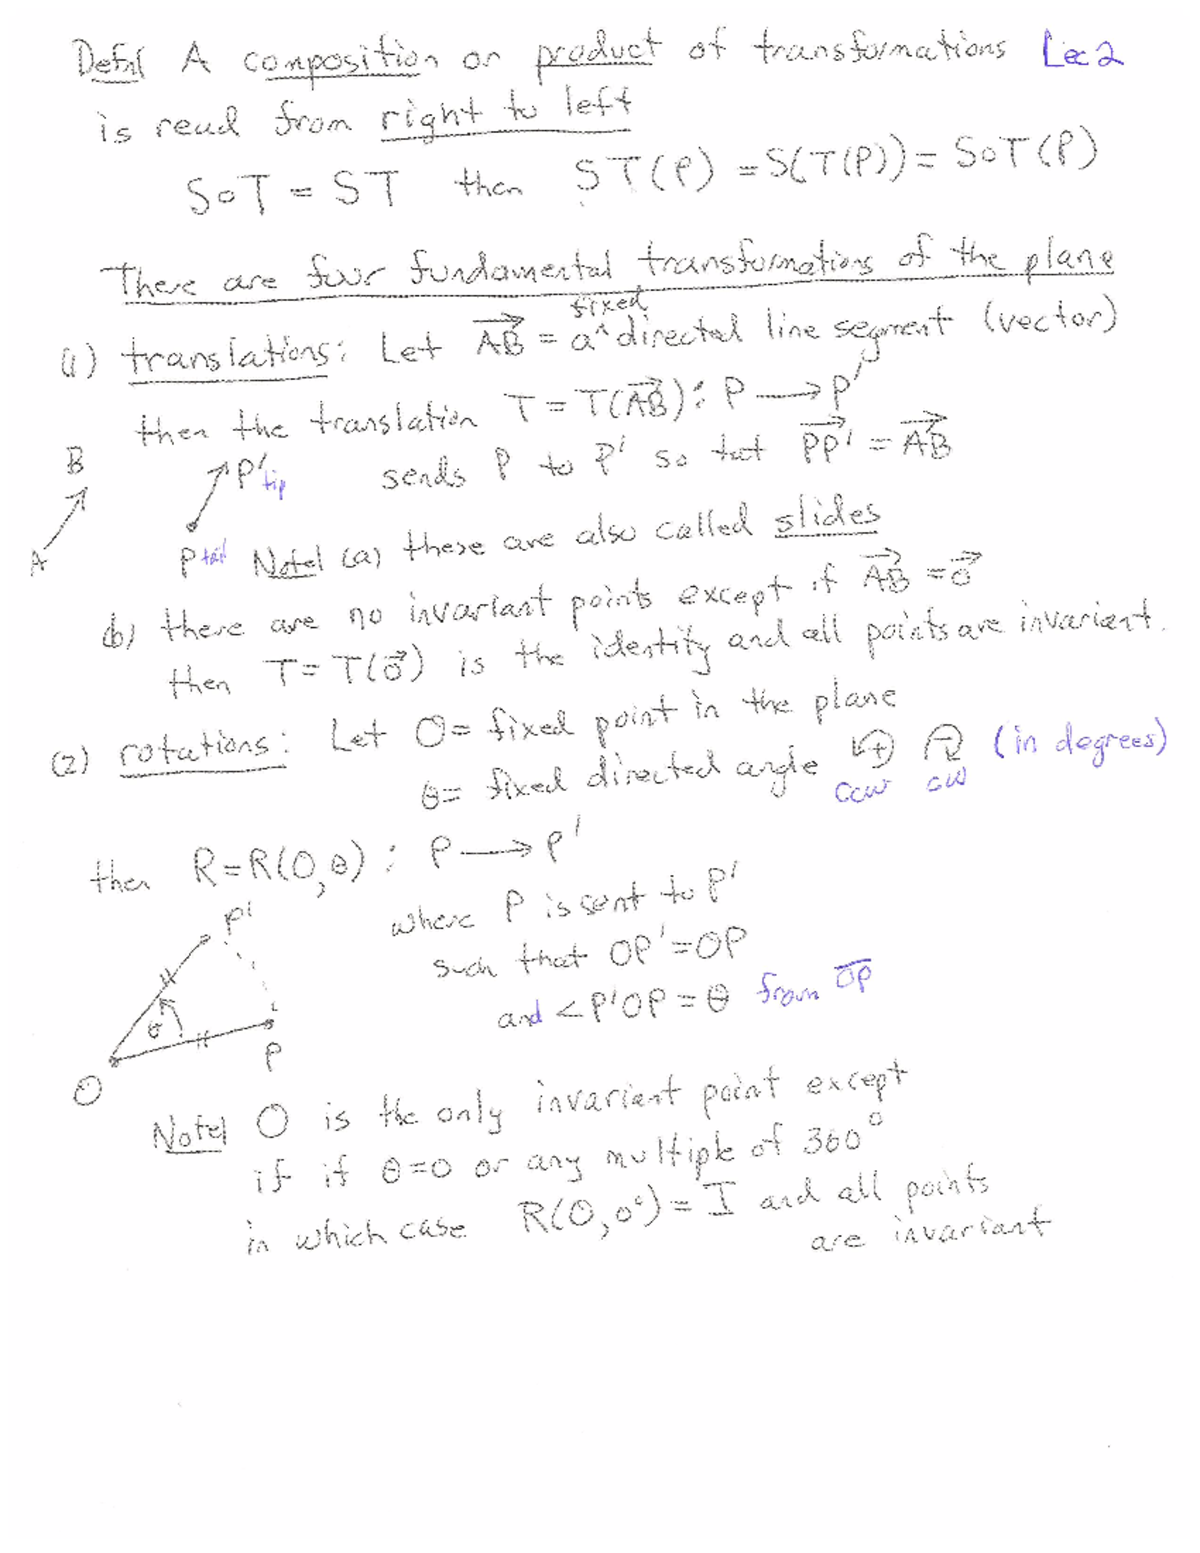 Defn| A composition or product of transformations Lec 2
is read from right to left
S∘T = ST then ST(P) = S(T(P)) = S∘T(P)
There are four fundamental transformations of the plane
(1) translations: Let A͞B⃗ = a ^fixed directed line segment (vector)
then the translation T = T(AB⃗): P → P'
sends P to P' so that PP'⃗ = AB⃗
B
A
P' tip
P tail
Note| (a) these are also called slides
(b) there are no invariant points except if AB⃗ = 0⃗
then T = T(0⃗) is the identity and all points are invariant.
(2) rotations: Let O = fixed point in the plane
θ = fixed directed angle + - (in degrees)
ccw cw
then R = R(O, θ): P → P'
where P is sent to P'
such that OP' = OP
and <P'OP = θ from O͞P
P'
θ
P
O
Note| O is the only invariant point except
if if θ = 0 or any multiple of 360°
in which case R(O, 0°) = I and all points
are invariant